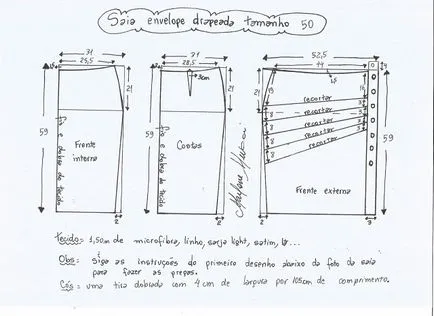 Saia envelope drapeada tamanho 50
31
25,5
21
59
Fio e dobra do tecido
Frente interna
2
31
28,5
3cm
21
59
Fio e dobra do tecido
Costas
2
52,5
44
15
16
21
recortar
recortar
recortar
recortar
recortar
8
8
8
8
3
3
3
3
59
Frente externa
2
3
Marlene Mukai
Tecido = 1,50m de microfibra, linho, sarja light, satim,
Obs: Siga as instruções do primeiro desenho abaixo da foto da saia
para fazer as pregas.
Cós: uma tira dobrada com 4cm de largura por 105cm de comprimento.